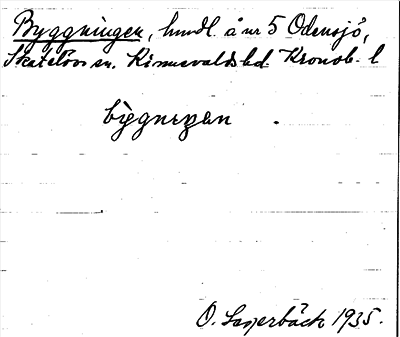 Byggningen, hmdl. å nr 5 Odensjö,
Skatelövs sn. Kinnevalds hd. Kronob. l
O. Lagerbäck 1935.